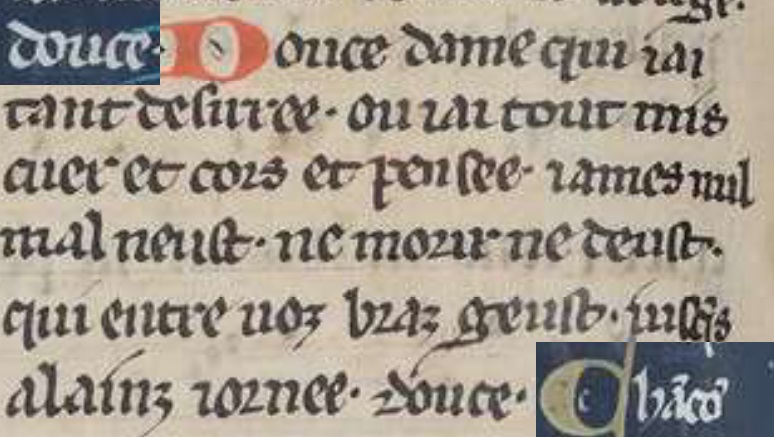 douce· Douce dame qui iai
tant desirree· ou iai tout mis
cuer et cors et pensee· iames nul
mal neust· ne morir ne deust·
qui entre uoz braz geust· iusq̃s
alainz iornee· douce· Chãco᷑